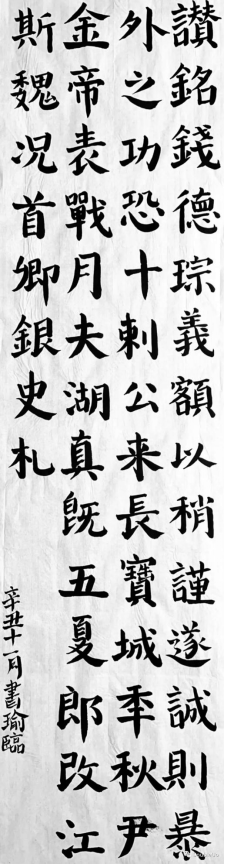 讚銘錢德琮義額以稍謹遂誠則暴
外之功恐十剌公来長寶城秊秋尹
金帝表戰月夫湖真既五夏郎改江
斯魏况首卿銀史札
辛丑十一月書瑜臨